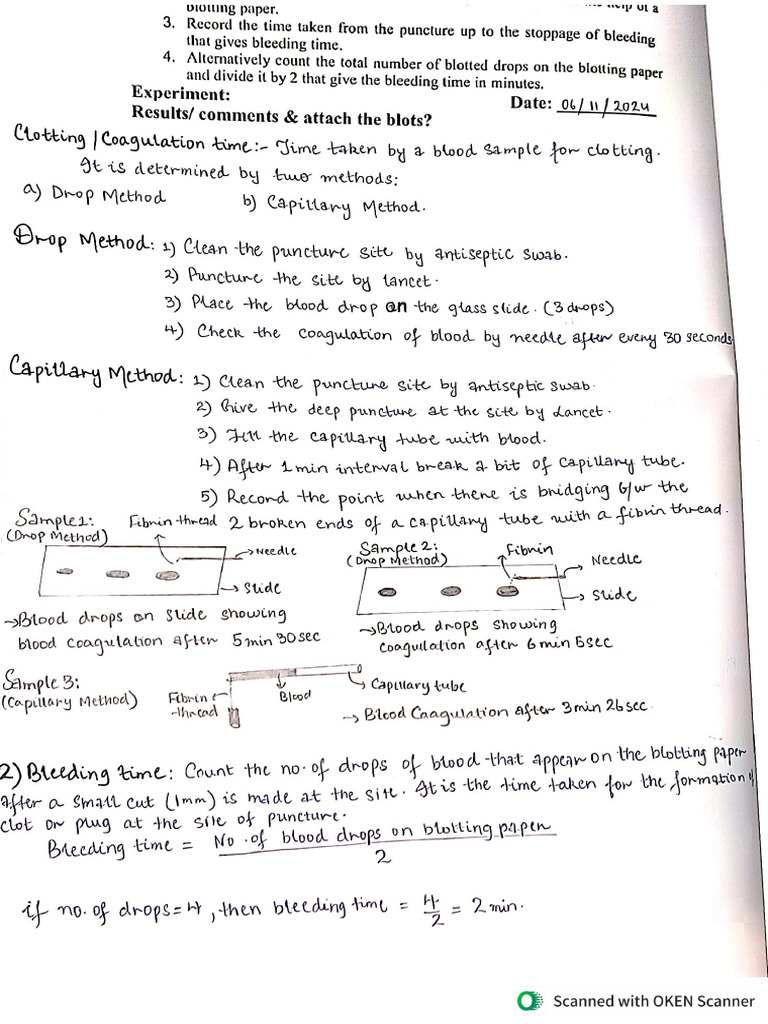 blotting paper.
help of a
3. Record the time taken from the puncture up to the stoppage of bleeding
that gives bleeding time.
4. Alternatively count the total number of blotted drops on the blotting paper
and divide it by 2 that give the bleeding time in minutes.
Experiment:
Date: 06/11/2024
Results/ comments & attach the blots?
Clotting / Coagulation time:- Time taken by a blood sample for clotting.
It is determined by two methods:
a) Drop Method
b) Capillary Method.
Drop Method: 1) Clean the puncture site by antiseptic swab.
2) Puncture the site by lancet.
3) Place the blood drop on the glass slide. (3 drops)
4) Check the coagulation of blood by needle after every 30 seconds
Capillary Method: 1) Clean the puncture site by antiseptic swab.
2) Give the deep puncture at the site by Lancet.
3) Fill the capillary tube with blood.
4) After 1 min interval break a bit of capillary tube.
5) Record the point when there is bridging b/w the
2 broken ends of a capillary tube with a fibrin thread.
Sample 1:
(Drop Method)
Fibrin thread
Needle
Slide
→Blood drops on slide showing
blood coagulation after 5 min 30 sec
Sample 2:
(Drop Method)
Fibrin
Needle
Slide
→Blood drops showing
coagullation after 6 min 5sec
Sample 3:
(Capillary Method)
Fibrin
thread
Blood
Capillary tube
→ Blood Coagulation after 3 min 26 sec
2) Bleeding time: Count the no. of drops of blood that appear on the blotting paper
after a small cut (1mm) is made at the site. It is the time taken for the formation of
clot or plug at the site of puncture.
Bleeding time = No. of blood drops on blotting paper
2
if no. of drops = 4, then bleeding time = 4/2 = 2 min.
Scanned with OKEN Scanner